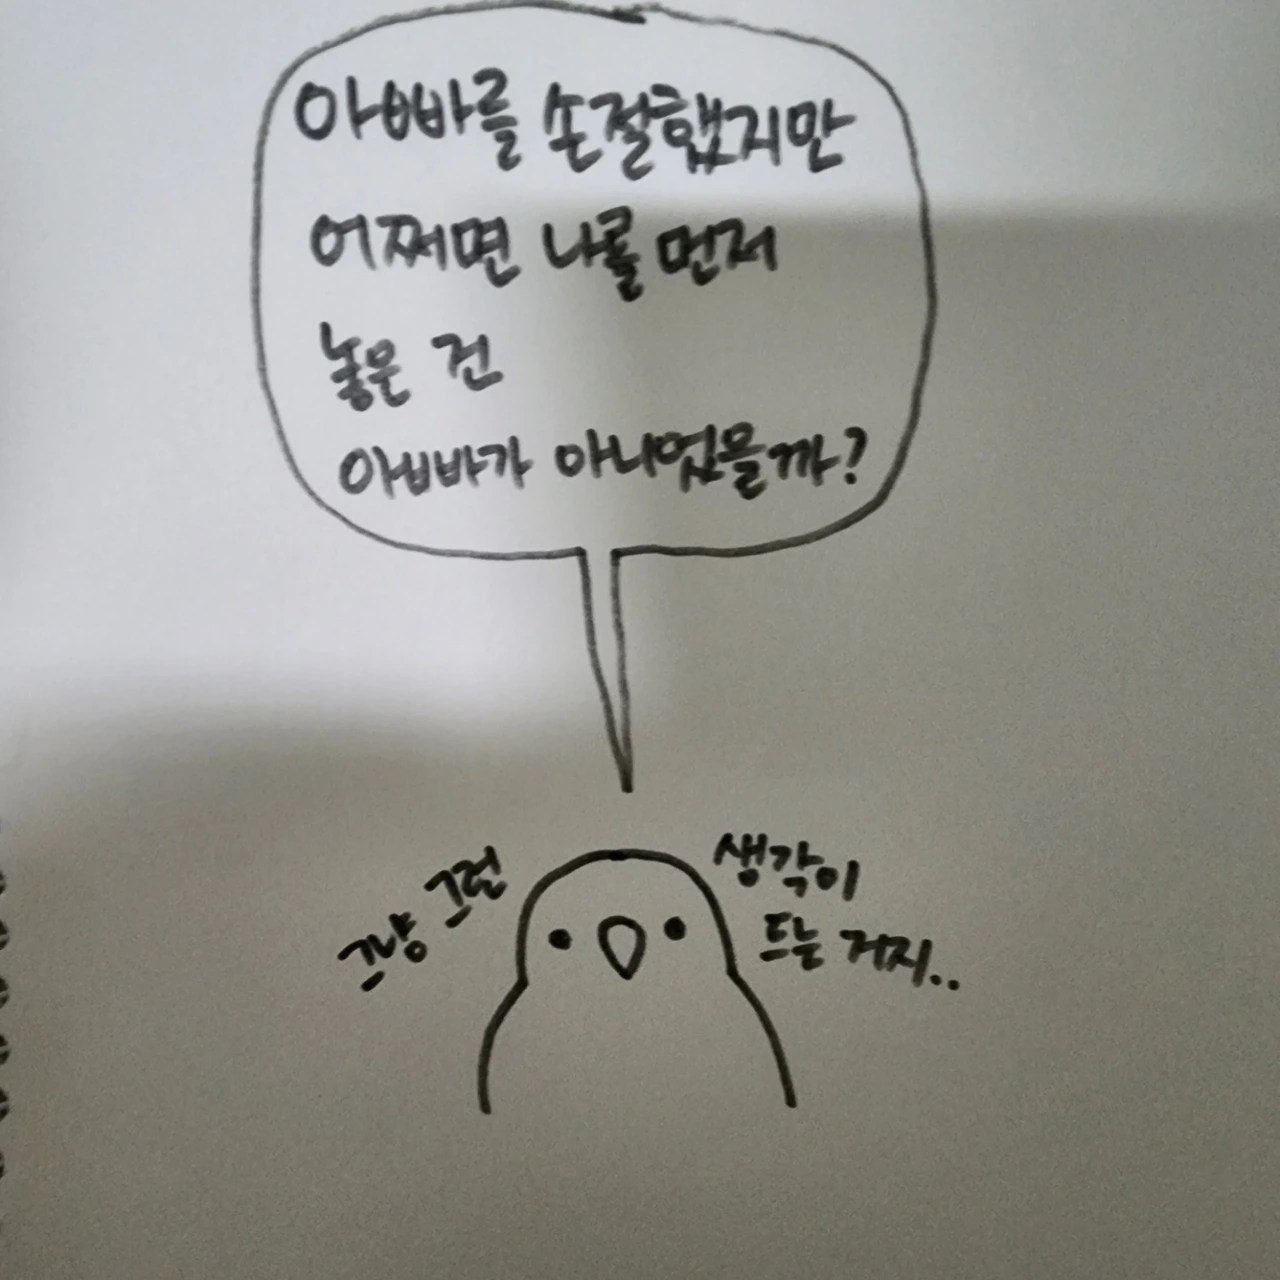 아빠를 손절했지만
어쩌면 나를 먼저
놓은 건
아빠가 아니었을까?
그냥 그런
생각이
드는 거지..